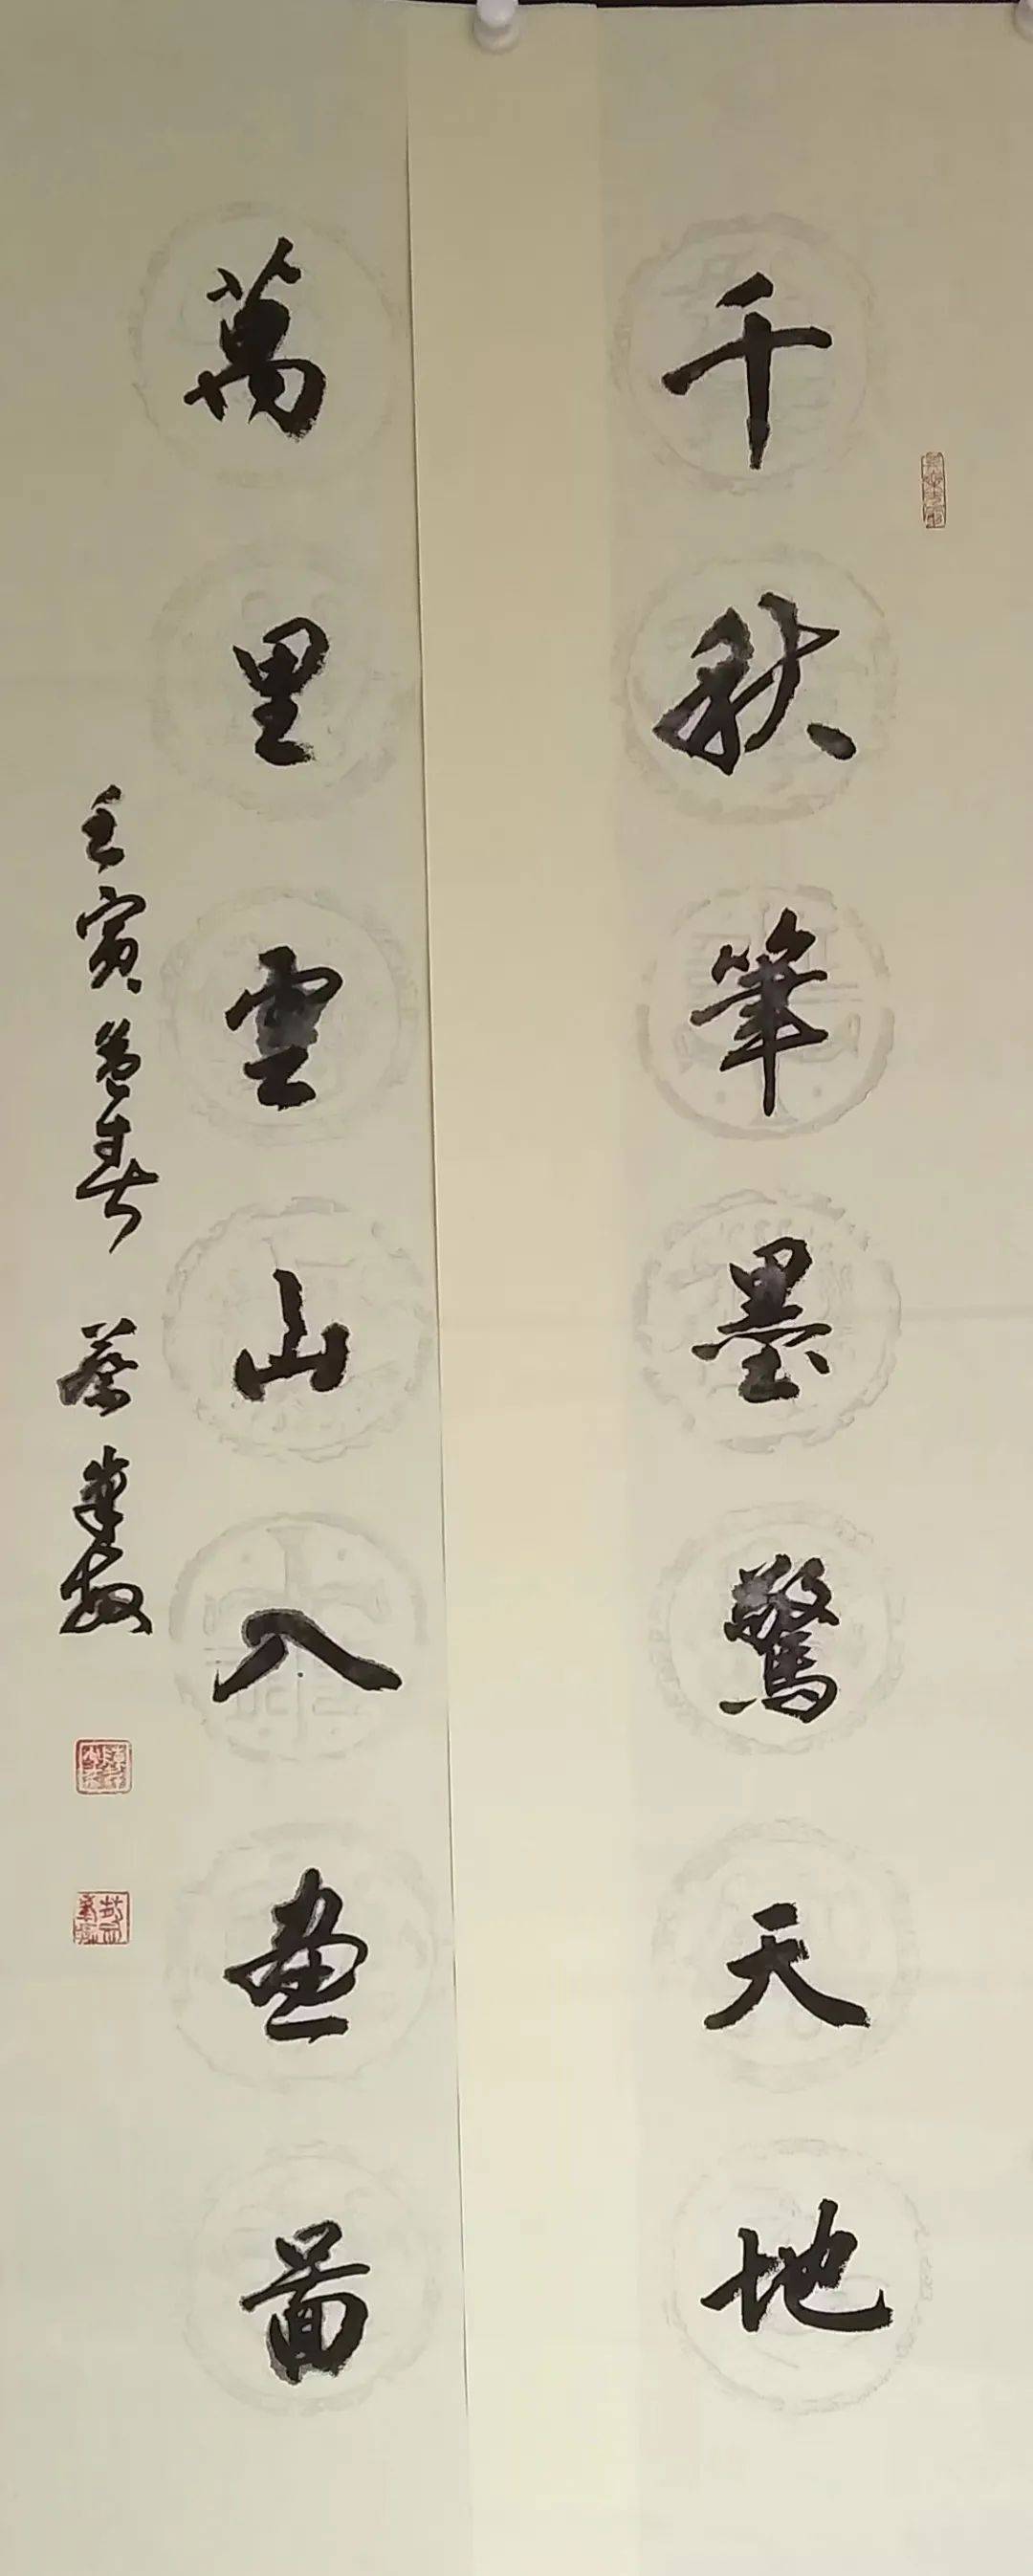 千秋筆墨驚天地
萬里雲山入畫圖
壬寅 春 蔡